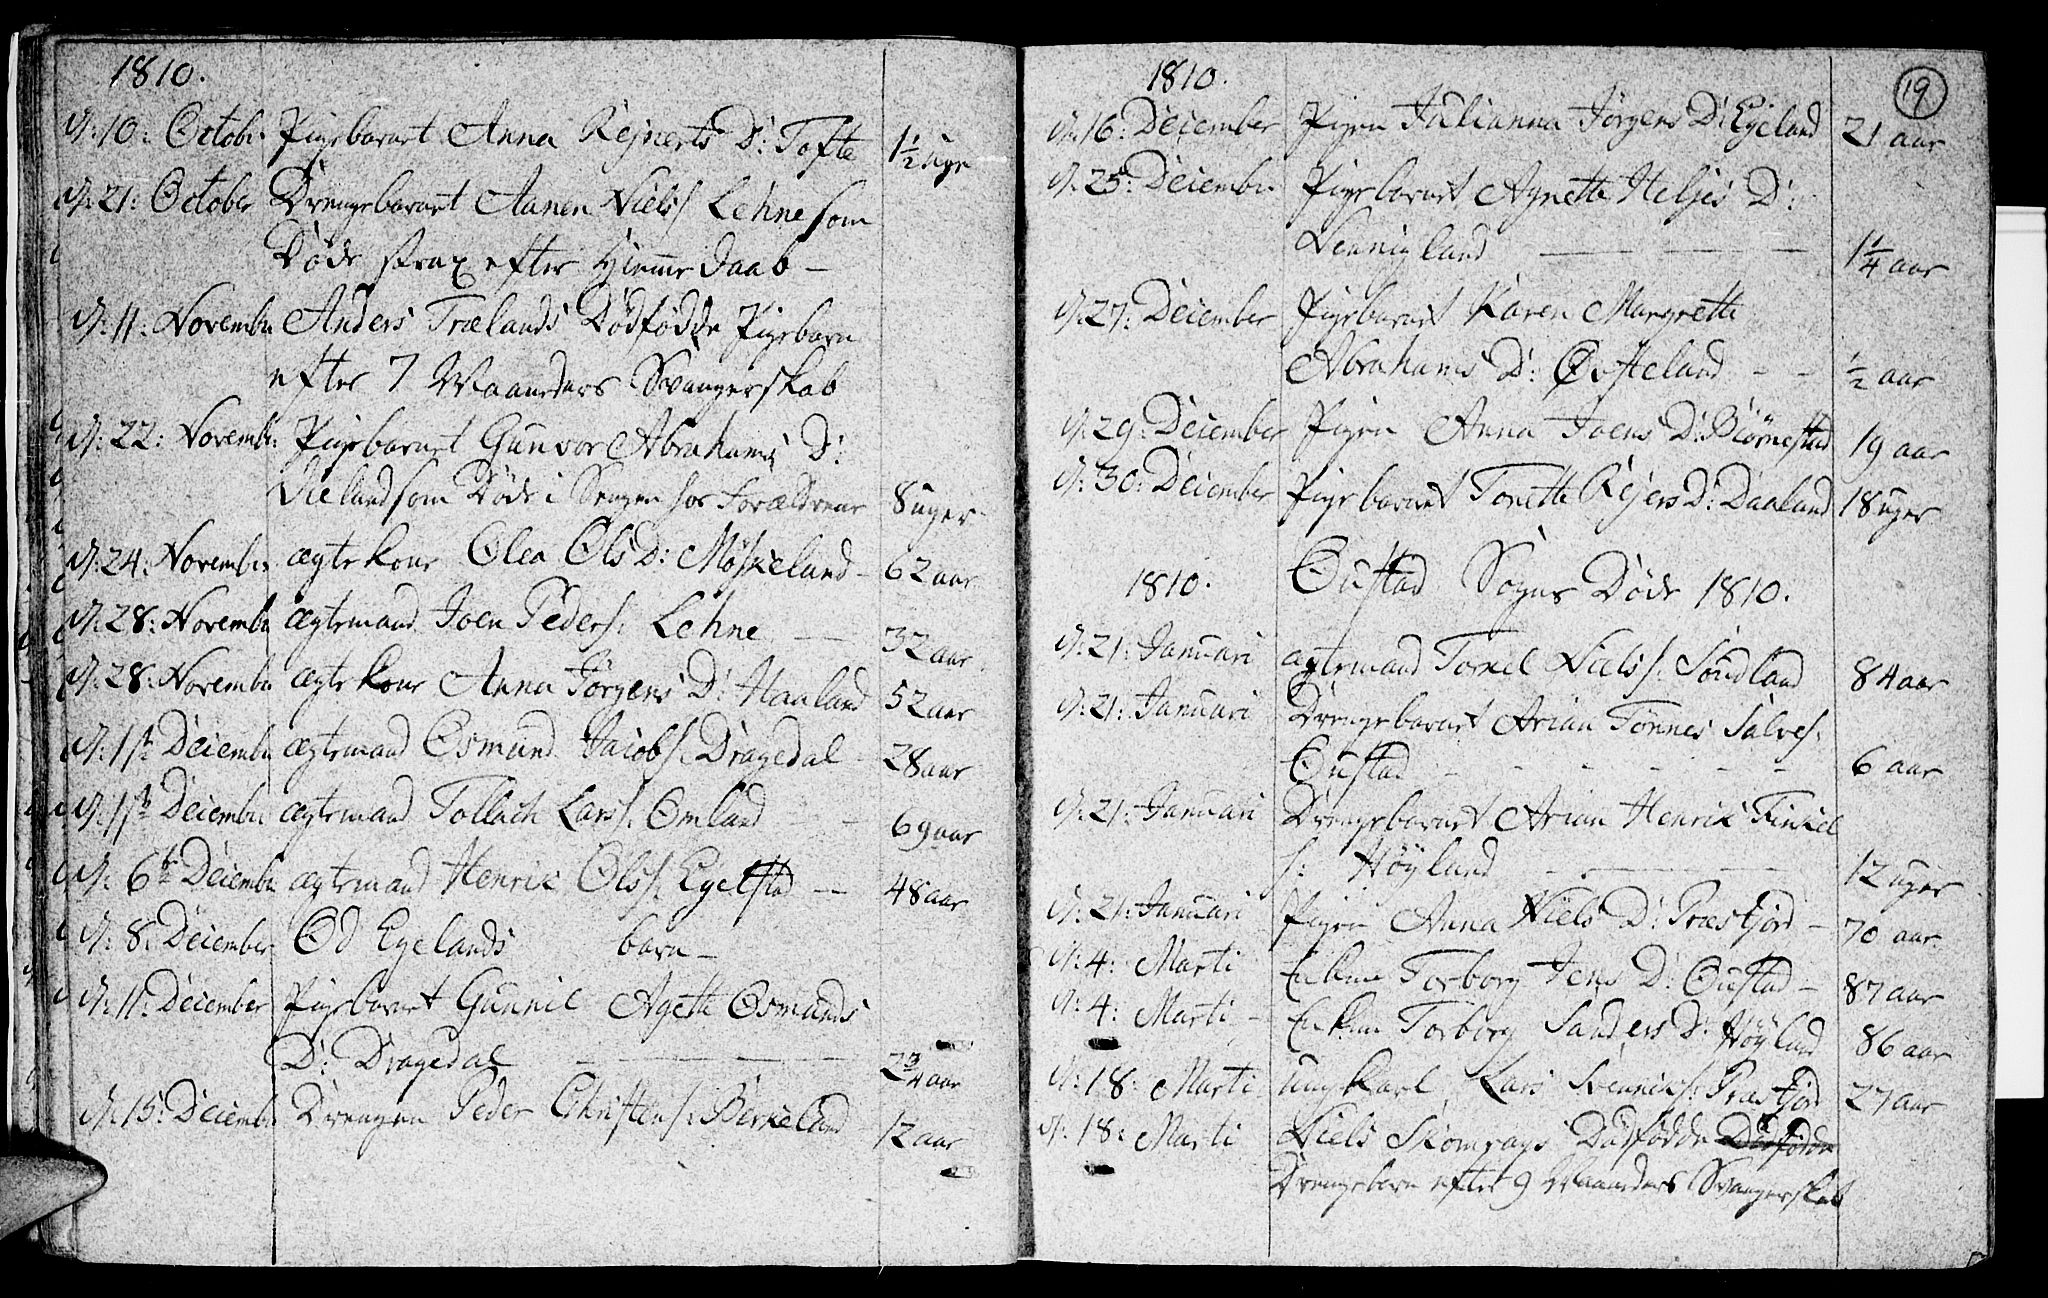 1810.
d: 10: Octobr Pigebarnet Anna Rejnerts D: Tofte 1½ uge
d: 21: October Drengebarnet Aanen Niels s. Lehne som
Døde strax efter Hjemme daab -
d: 11: Novembr Anders Trælands Dødfødde Pigebarn
efter 7 Maaneders Svangerskab
d: 22: Novembr Pigebarnet Gunvor Abrahams D:
som Døde i Sengen hos Forældrene 8 uger
d: 24: Novembr ægtekone Olea Ols D: Møskeland - 62 aar
d: 28: Novembr ægtemand Joen Peders: Lehne - 32 aar
d: 28: Novembr ægtekone Anna Jørgens D: Hauland 52 aar
d: 1ste Decembr ægtemand Osmund Jacobs: Dragedal - 28 aar
d: 1ste Decembr ægtemand Tollach Lars s: Omland - - 69 aar
d: 6te Decembr ægtemand Henrik Ols s: Egelstad - 48 aar
d: 8: December Od Egelands barn -
d: 11: December Pigebarnet Gunnil Agethe Osmunds
D: Dragedal - - - 2¾ aar
d: 15: Decembr Drengen Peder Christens: Birkeland 12 aar
19
1810.
d: 16: December Pigen Julianna Jørgens D: Egeland 21 aar
d: 25: Decembr Pigebarnet Agnethe Heljes D:
Lennigland - - - 1¼ aar
d: 27: December Pigebarnet Karen Margrethe
Abrahams D: Øvsteland - - ½ aar
d: 29: December Pigen Anna Joens D: Biørnestad 19 aar
d: 30: December Pigebarnet Tonette Rejers D: Daaland 18 uger
1810. Oustad Sogns Døde 1810.
d: 21: Januari ægtemand Torkel Niels s: Sondland 84 aar
d: 21: Januari Drengebarnet Arian Tønnes Salves:
Oustad - - - - - - 6 aar
d: 21: Januari Drengebarnet Arian Henrik Tinkel
s: Høyland - - - 12 uger
d: 21: Januari Pigen Anna Niels D: Præstjord - 70 aar
d: 4: Marti Enken Torborg Jens D: Oustad - 87 aar
d: 4: Marti - Enken Torborg Sanders D: Høyland 86 aar
d: 18: Marti ungkarl Lars Svenniks: Præstjord 27 aar
d: 18: Marti Niels Skomrags Dødfødde Dødfødde
Drengebarn efter 9 Maaneders Svangerskab